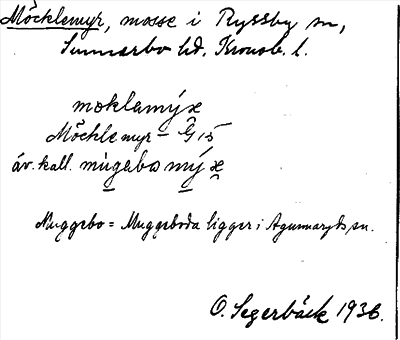 Möcklemyr, mosse i Ryssby sn,
Sunnerbo hd. Kronob. l.
moklamýx
Möcklemyr - G 15
äv. kall. mùgabo mý x
Muggebo = Muggeboda ligger i Agunnaryds sn.
O. Segerbäck 1936.